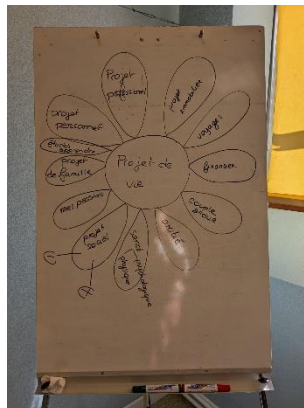 Projet de
vie
Projet
professionnel
projet
immobilier
voyages
finances
couple
amour
amitié
santé psychologique
physique
projet
social
mes passions
projet
de famille
études
apprendre
projet
personnel